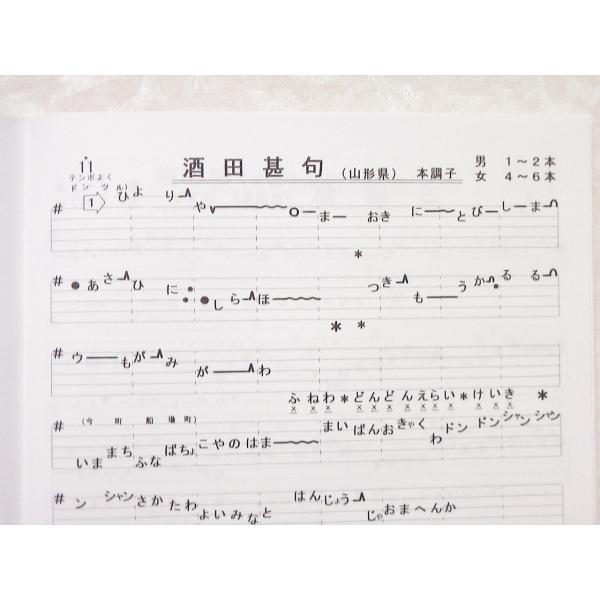 11
テンポよく
ドン ツル)
酒田甚句 (山形県) 本調子
男 1～2本
女 4～6本
# 1 ひより や〰〰o ー まー おき にー とびー しーま
# ●あさ ひ に ●しらほ〰〰 * つき も うか るる
* *
# ウーもがみ がーわ
ふねわ*どんどんえらい*けいき *
(今町船場町)
# いままち ふなばちょ こやのはまー〰 まいばんおきゃくわ ドン ドン シャン シャン
# ン シャン さかたわ よいみなと はんじょう じゃおまへんか